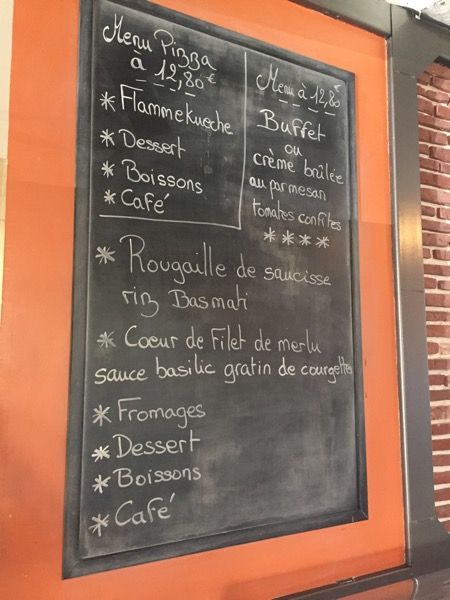 Menu Pizza
à 12,80€
* Flammekueche
* Dessert
* Boissons
* Café
Menu à 12,80€
Buffet
ou
crème brûlée
au parmesan
tomates confites
* * * *
* Rougaille de saucisse
riz Basmati
* Coeur de Filet de merlu
sauce basilic gratin de courgettes
* Fromages
* Dessert
* Boissons
* Café